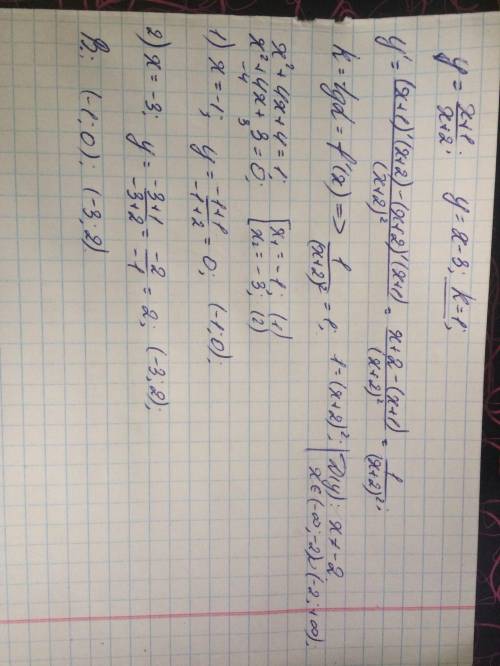 y = (x+1)/(x+2); y = x - 3; k = 1;
y' = ((x+1)'(x+2) - (x+2)'(x+1))/(x+2)² = (x+2-(x+1))/(x+2)² = 1/(x+2)²;
k = tgα = f'(x) => 1/(x+2)² = 1; 1 = (x+2)²; | D(y): x ≠ -2
x ∈ (-∞; -2) ∪ (-2; +∞);
x² + 4x + 4 = 1;
x² + 4x + 3 = 0; [ x₁ = -1; (1)
-4 3 [ x₂ = -3; (2)
1) x = -1; y = (-1+1)/(-1+2) = 0; (-1; 0);
2) x = -3; y = (-3+1)/(-3+2) = -2/-1 = 2; (-3; 2);
В.: (-1; 0); (-3; 2)